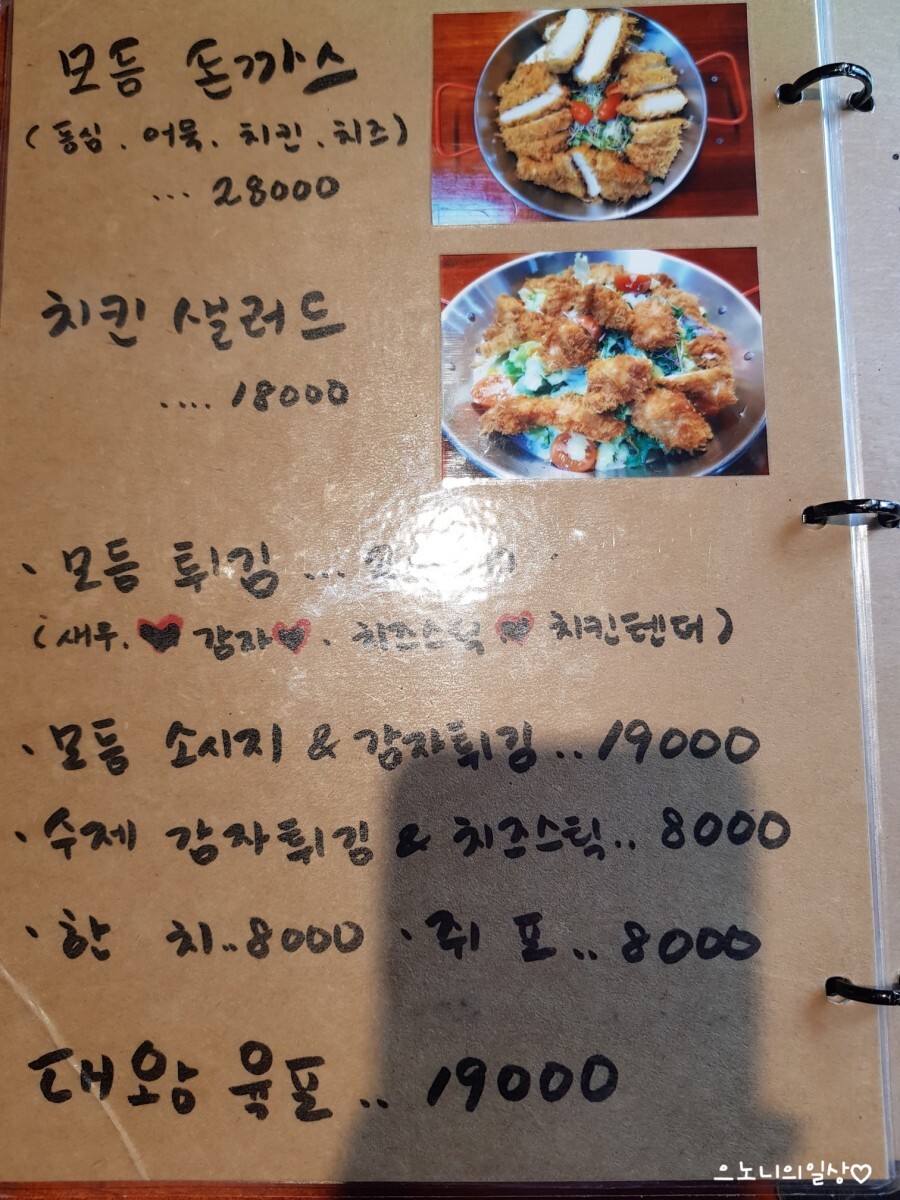 모듬 돈까스
(등심. 어묵. 치킨. 치즈)
... 28000
치킨 샐러드
.... 18000
· 모듬 튀김 ...
(새우. ♥ 감자♥ · 치즈스틱 ♥ 치킨텐더)
· 모듬 소시지 & 감자튀김 .. 19000
· 수제 감자튀김 & 치즈스틱.. 8000
· 한 치.. 8000 · 쥐 포 .. 8000
대왕 육포 .. 19000
으노니의일상♡